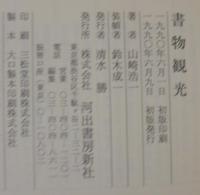 書物観光
一九九〇年六月一日　初版印刷
一九九〇年六月九日　初版発行
著者　山崎浩一
装幀者　鈴木成一
発行者　清水　勝
発行所　株式会社　河出書房新社
東京都渋谷区千駄ケ谷二-三二-二
電話　営業
編集
振替口座
印刷　三松堂印刷株式会社
製本　大口製本印刷株式会社